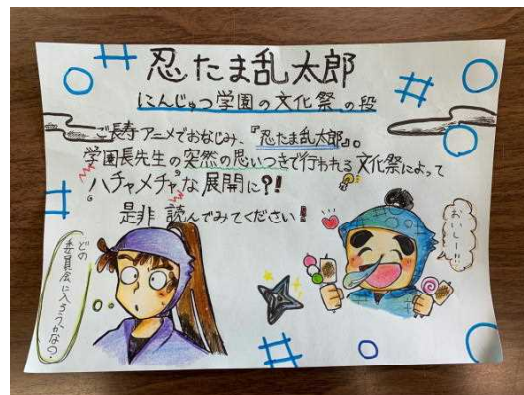 忍たま乱太郎
にんじゅつ学園の文化祭の段
ご長寿アニメでおなじみ、『忍たま乱太郎』。
学園長先生の突然の思いつきで行われる文化祭によって
"ハチャメチャ"な展開に?!
是非 読んでみてください!
おいしー!!
どの
委員会に入ろうかな?